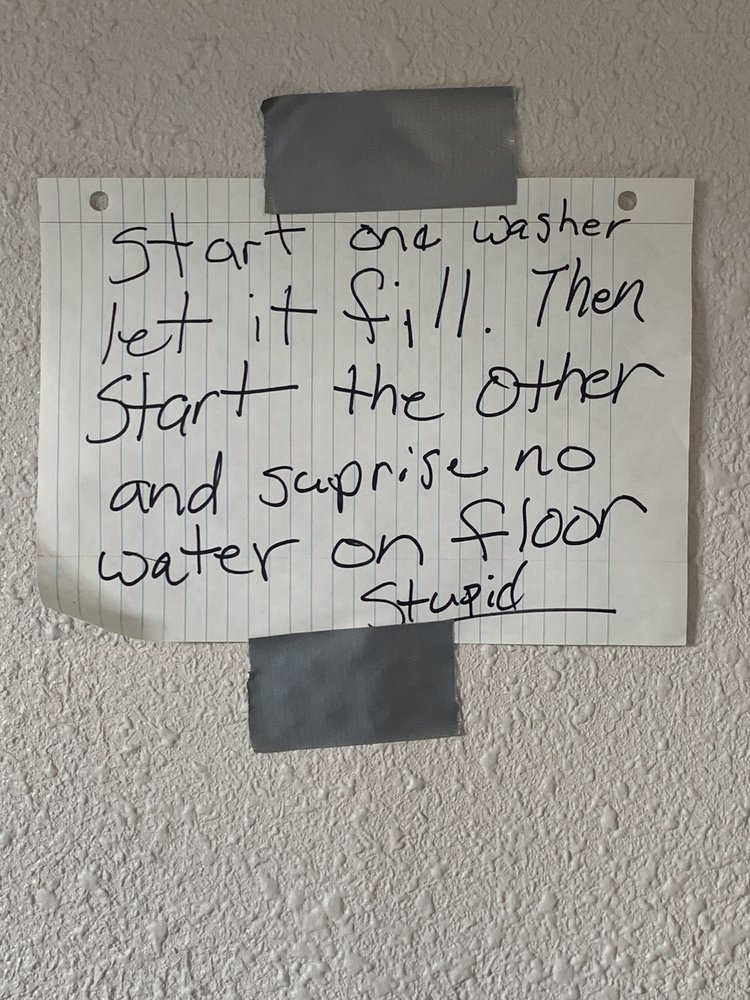 Start one washer
let it fill. Then
Start the other
and suprise no
water on floor
Stupid